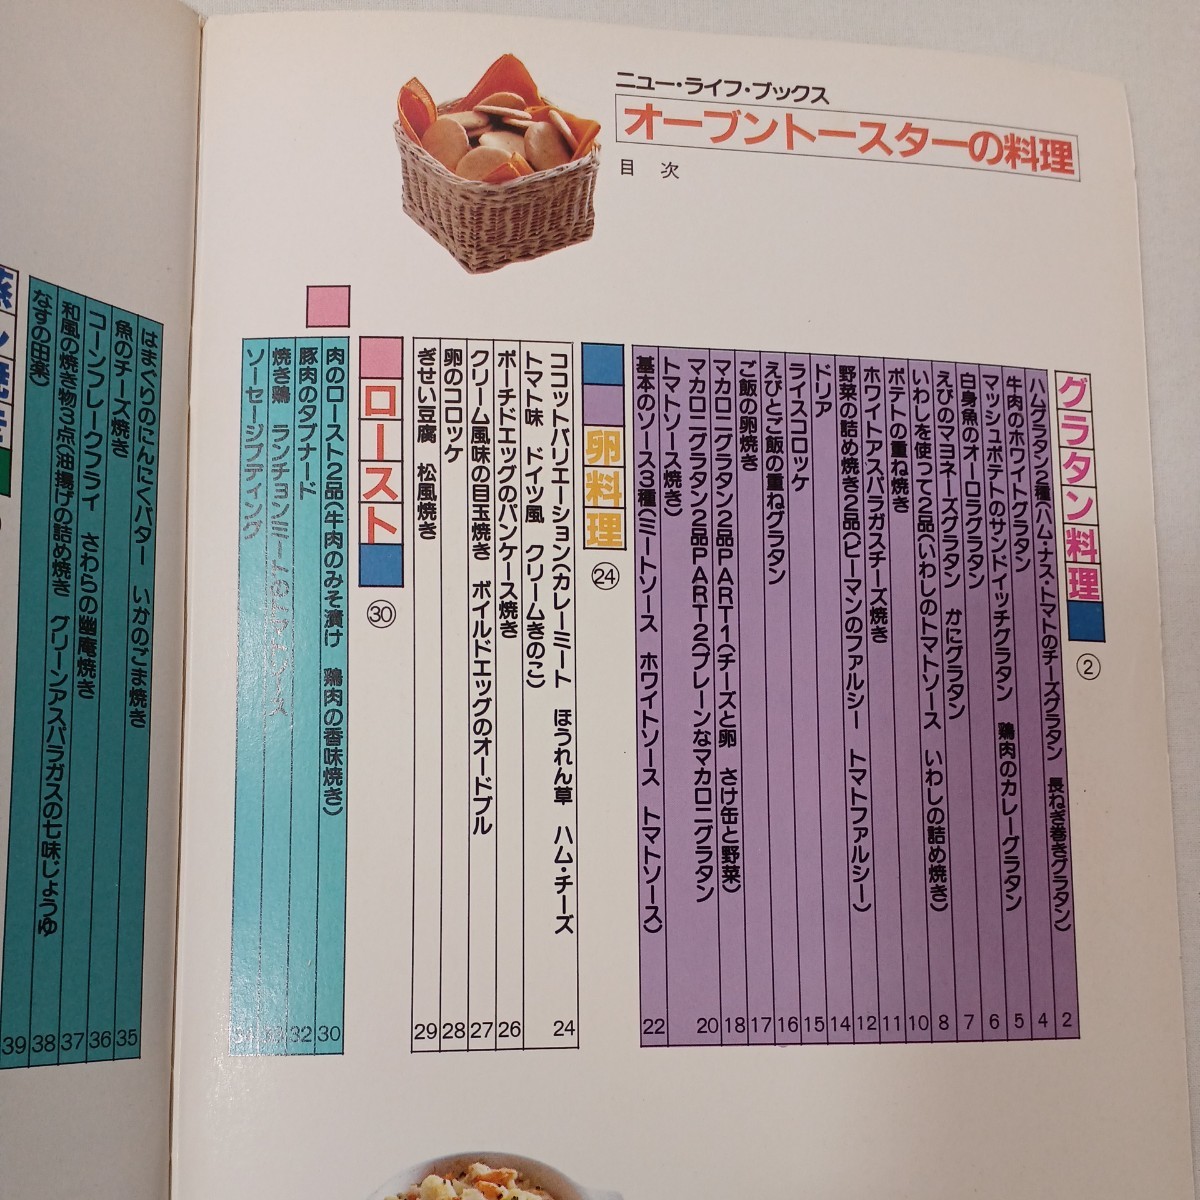 ニュー・ライフ・ブックス
オーブントースターの料理
目次
グラタン料理 ②
ハムグラタン2種(ハム・ナス・トマトのチーズグラタン 長ねぎ巻きグラタン) 2
牛肉のホワイトグラタン 4
マッシュポテトのサンドイッチグラタン 鶏肉のカレーグラタン 5
白身魚のオーロラグラタン 6
えびのマヨネーズグラタン かにグラタン 7
いわしを使って2品(いわしのトマトソース いわしの詰め焼き) 8
ポテトの重ね焼き 10
ホワイトアスパラガスチーズ焼き 11
野菜の詰め焼き2品(ピーマンのファルシー トマトファルシー) 12
ドリア 14
ライスコロッケ 15
えびとご飯の重ねグラタン 16
ご飯の卵焼き 17
マカロニグラタン2品PART1(チーズと卵 さけ缶と野菜) 18
マカロニグラタン2品PART2(プレーンなマカロニグラタン
トマトソース焼き) 20
基本のソース3種(ミートソース ホワイトソース トマトソース) 22
卵料理 ㉔
ココットバリエーション(カレーミート ほうれん草 ハム・チーズ
トマト味 ドイツ風 クリームきのこ) 24
ポーチドエッグのパンケース焼き 26
クリーム風味の目玉焼き ボイルドエッグのオードブル 27
卵のコロッケ 28
ぎせい豆腐 松風焼き 29
ロースト ㉚
肉のロースト2品(牛肉のみそ漬け 鶏肉の香味焼き) 30
豚肉のタプナード 32
焼き鶏 ランチョンミートのトマトソース
ソーセージプディング
はまぐりのにんにくバター いかのごま焼き 35
魚のチーズ焼き 36
コーンフレークフライ さわらの幽庵焼き 37
和風の焼き物3点(油揚げの詰め焼き グリーンアスパラガスの七味じょうゆ
なすの田楽) 38
39